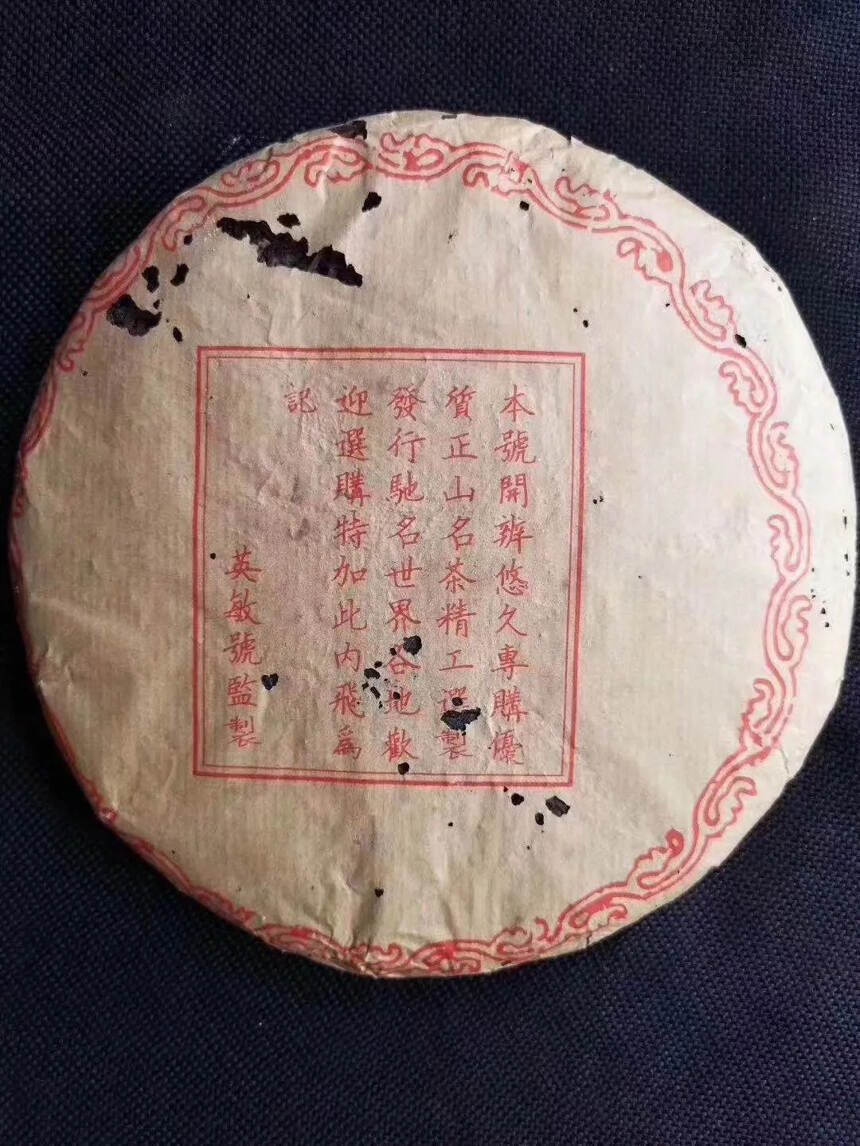 本號開辦悠久專購優
質正山名茶精工選製
發行馳名世界各地歡
迎選購特加此內飛為
記
英敏號監製